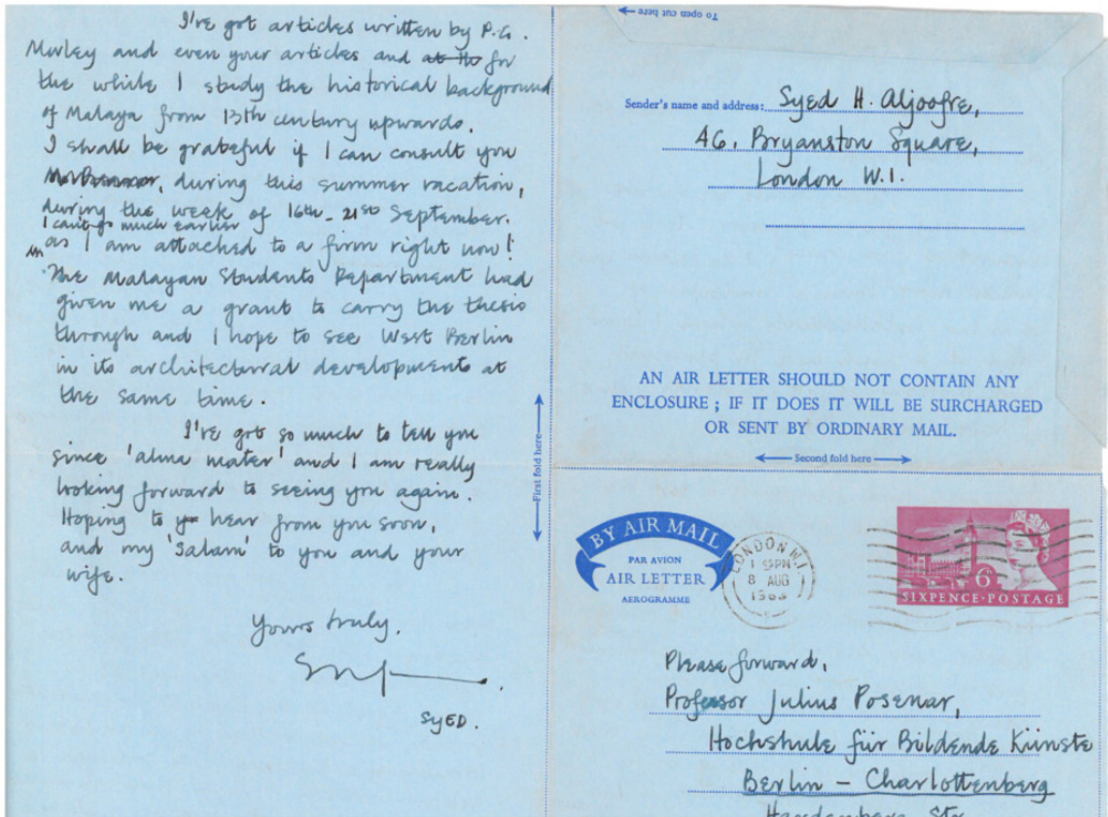 I've got articles written by P.G.
Morley and even your articles and at the for
the while I study the historical background
of Malaya from 13th century upwards.
I shall be grateful if I can consult you
during this summer vacation,
during the week of 16th - 21st September.
I can't go much earlier
as I am attached to a firm right now!
The Malayan Students Department had
given me a grant to carry the thesis
through and I hope to see West Berlin
in its architectural developments at
the same time.
I've got so much to tell you
since 'alma mater' and I am really
looking forward to seeing you again.
Hoping to hear from you soon,
and my 'Salam' to you and your
wife.
Yours truly,
SYED.
To open cut here
Sender's name and address: Syed H. Aljoofre,
46, Bryanston Square,
London W.1.
AN AIR LETTER SHOULD NOT CONTAIN ANY
ENCLOSURE ; IF IT DOES IT WILL BE SURCHARGED
OR SENT BY ORDINARY MAIL.
Second fold here
First fold here
BY AIR MAIL
PAR AVION
AIR LETTER
AEROGRAMME
LONDON W.1
PM
8 AUG
1963
6D
SIXPENCE·POSTAGE
Please forward,
Professor Julius Posenar,
Hochshule für Bildende Künste
Berlin - Charlottenberg